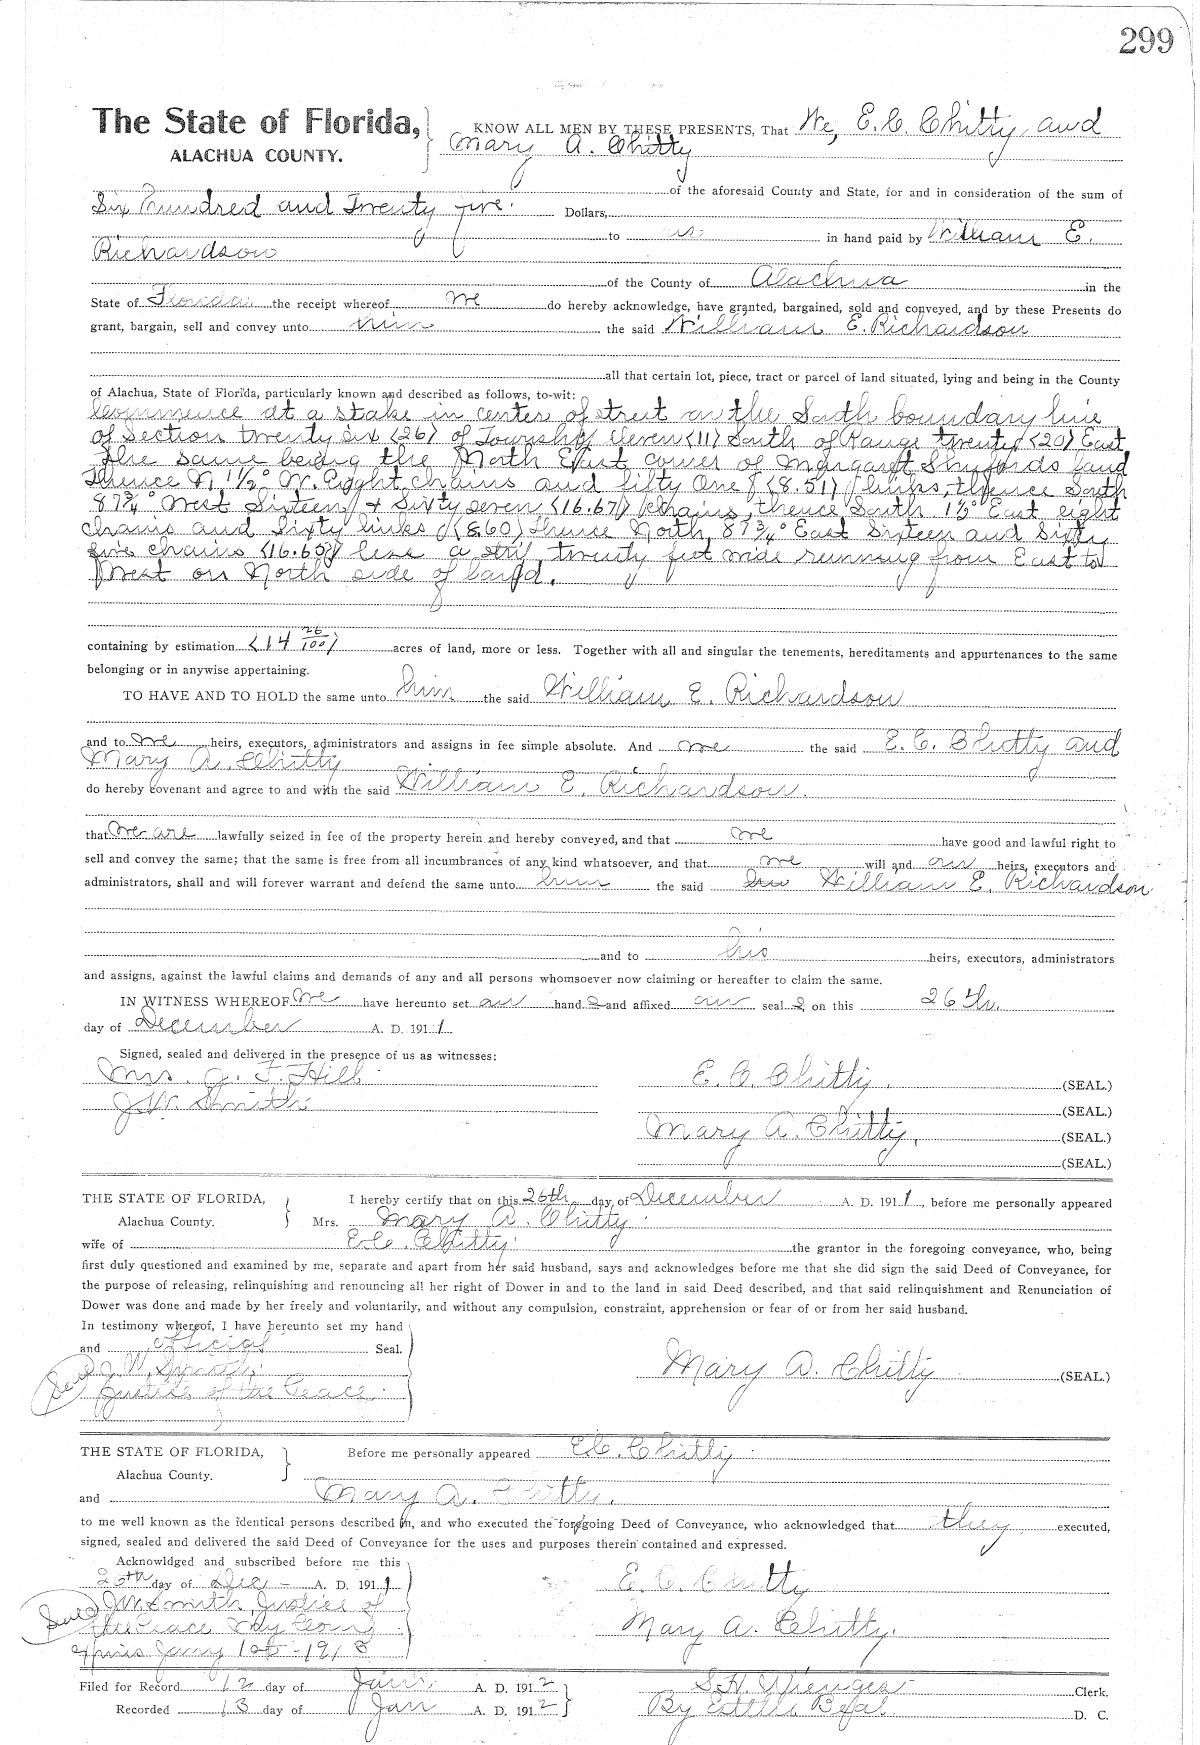 299
The State of Florida, KNOW ALL MEN BY THESE PRESENTS, That We, E. C. Chitty and
ALACHUA COUNTY. Mary A. Chitty
of the aforesaid County and State, for and in consideration of the sum of
Six Hundred and Twenty five Dollars,
to us in hand paid by William E.
Richardson
of the County of Alachua in the
State of Florida the receipt whereof we do hereby acknowledge, have granted, bargained, sold and conveyed, and by these Presents do
grant, bargain, sell and convey unto him the said William E. Richardson
all that certain lot, piece, tract or parcel of land situated, lying and being in the County
of Alachua, State of Florida, particularly known and described as follows, to-wit:
Commence at a stake in center of street on the South boundary line
of Section twenty six (26) of Township Eleven (11) South of Range twenty (20) East
the same being the North East corner of Margaret Shufords land
Thence N 1½° W. Eight chains and fifty One (8.51) links, thence South
87¾° West Sixteen & Sixty seven (16.67) chains, thence South 1½° East eight
chains and Sixty links (8.60) thence North 87¾° East Sixteen and Sixty
five chains (16.65) less a strip twenty feet wide running from East to
West on North side of land.
containing by estimation (14 26/100) acres of land, more or less. Together with all and singular the tenements, hereditaments and appurtenances to the same
belonging or in anywise appertaining.
TO HAVE AND TO HOLD the same unto him the said William E. Richardson
and to we heirs, executors, administrators and assigns in fee simple absolute. And we the said E. C. Chitty and
Mary A. Chitty
do hereby covenant and agree to and with the said William E. Richardson.
that we are lawfully seized in fee of the property herein and hereby conveyed, and that we have good and lawful right to
sell and convey the same; that the same is free from all incumbrances of any kind whatsoever, and that we will and our heirs, executors and
administrators, shall and will forever warrant and defend the same unto him the said William E. Richardson
and to his heirs, executors, administrators
and assigns, against the lawful claims and demands of any and all persons whomsoever now claiming or hereafter to claim the same.
IN WITNESS WHEREOF, we have hereunto set our hand s and affixed our seal s on this 26th.
day of December A. D. 1911
Signed, sealed and delivered in the presence of us as witnesses:
Mrs. J. F. Hill E. C. Chitty. (SEAL.)
J. W. Smith (SEAL.)
Mary A. Chitty, (SEAL.)
(SEAL.)
THE STATE OF FLORIDA, I hereby certify that on this 26th day of December A. D. 1911, before me personally appeared
Alachua County. Mrs. Mary A. Chitty
wife of E. C. Chitty the grantor in the foregoing conveyance, who, being
first duly questioned and examined by me, separate and apart from her said husband, says and acknowledges before me that she did sign the said Deed of Conveyance, for
the purpose of releasing, relinquishing and renouncing all her right of Dower in and to the land in said Deed described, and that said relinquishment and Renunciation of
Dower was done and made by her freely and voluntarily, and without any compulsion, constraint, apprehension or fear of or from her said husband.
In testimony whereof, I have hereunto set my hand
and official Seal.
Seal J. W. Smith Mary A. Chitty (SEAL.)
Justice of the Peace.
THE STATE OF FLORIDA, Before me personally appeared E. C. Chitty
Alachua County.
and Mary A. Chitty.
to me well known as the identical persons described in, and who executed the foregoing Deed of Conveyance, who acknowledged that they executed,
signed, sealed and delivered the said Deed of Conveyance for the uses and purposes therein contained and expressed.
Acknowldged and subscribed before me this
26th day of Dec A. D. 1911 E. C. Chitty
Seal J. W. Smith, Justice of
the Peace My Mary A. Chitty.
Expires Jany 1st - 1913
Filed for Record 12 day of Jan. A. D. 1912 S. H. Wienges Clerk.
Recorded 13 day of Jan A. D. 1912 By D. C.